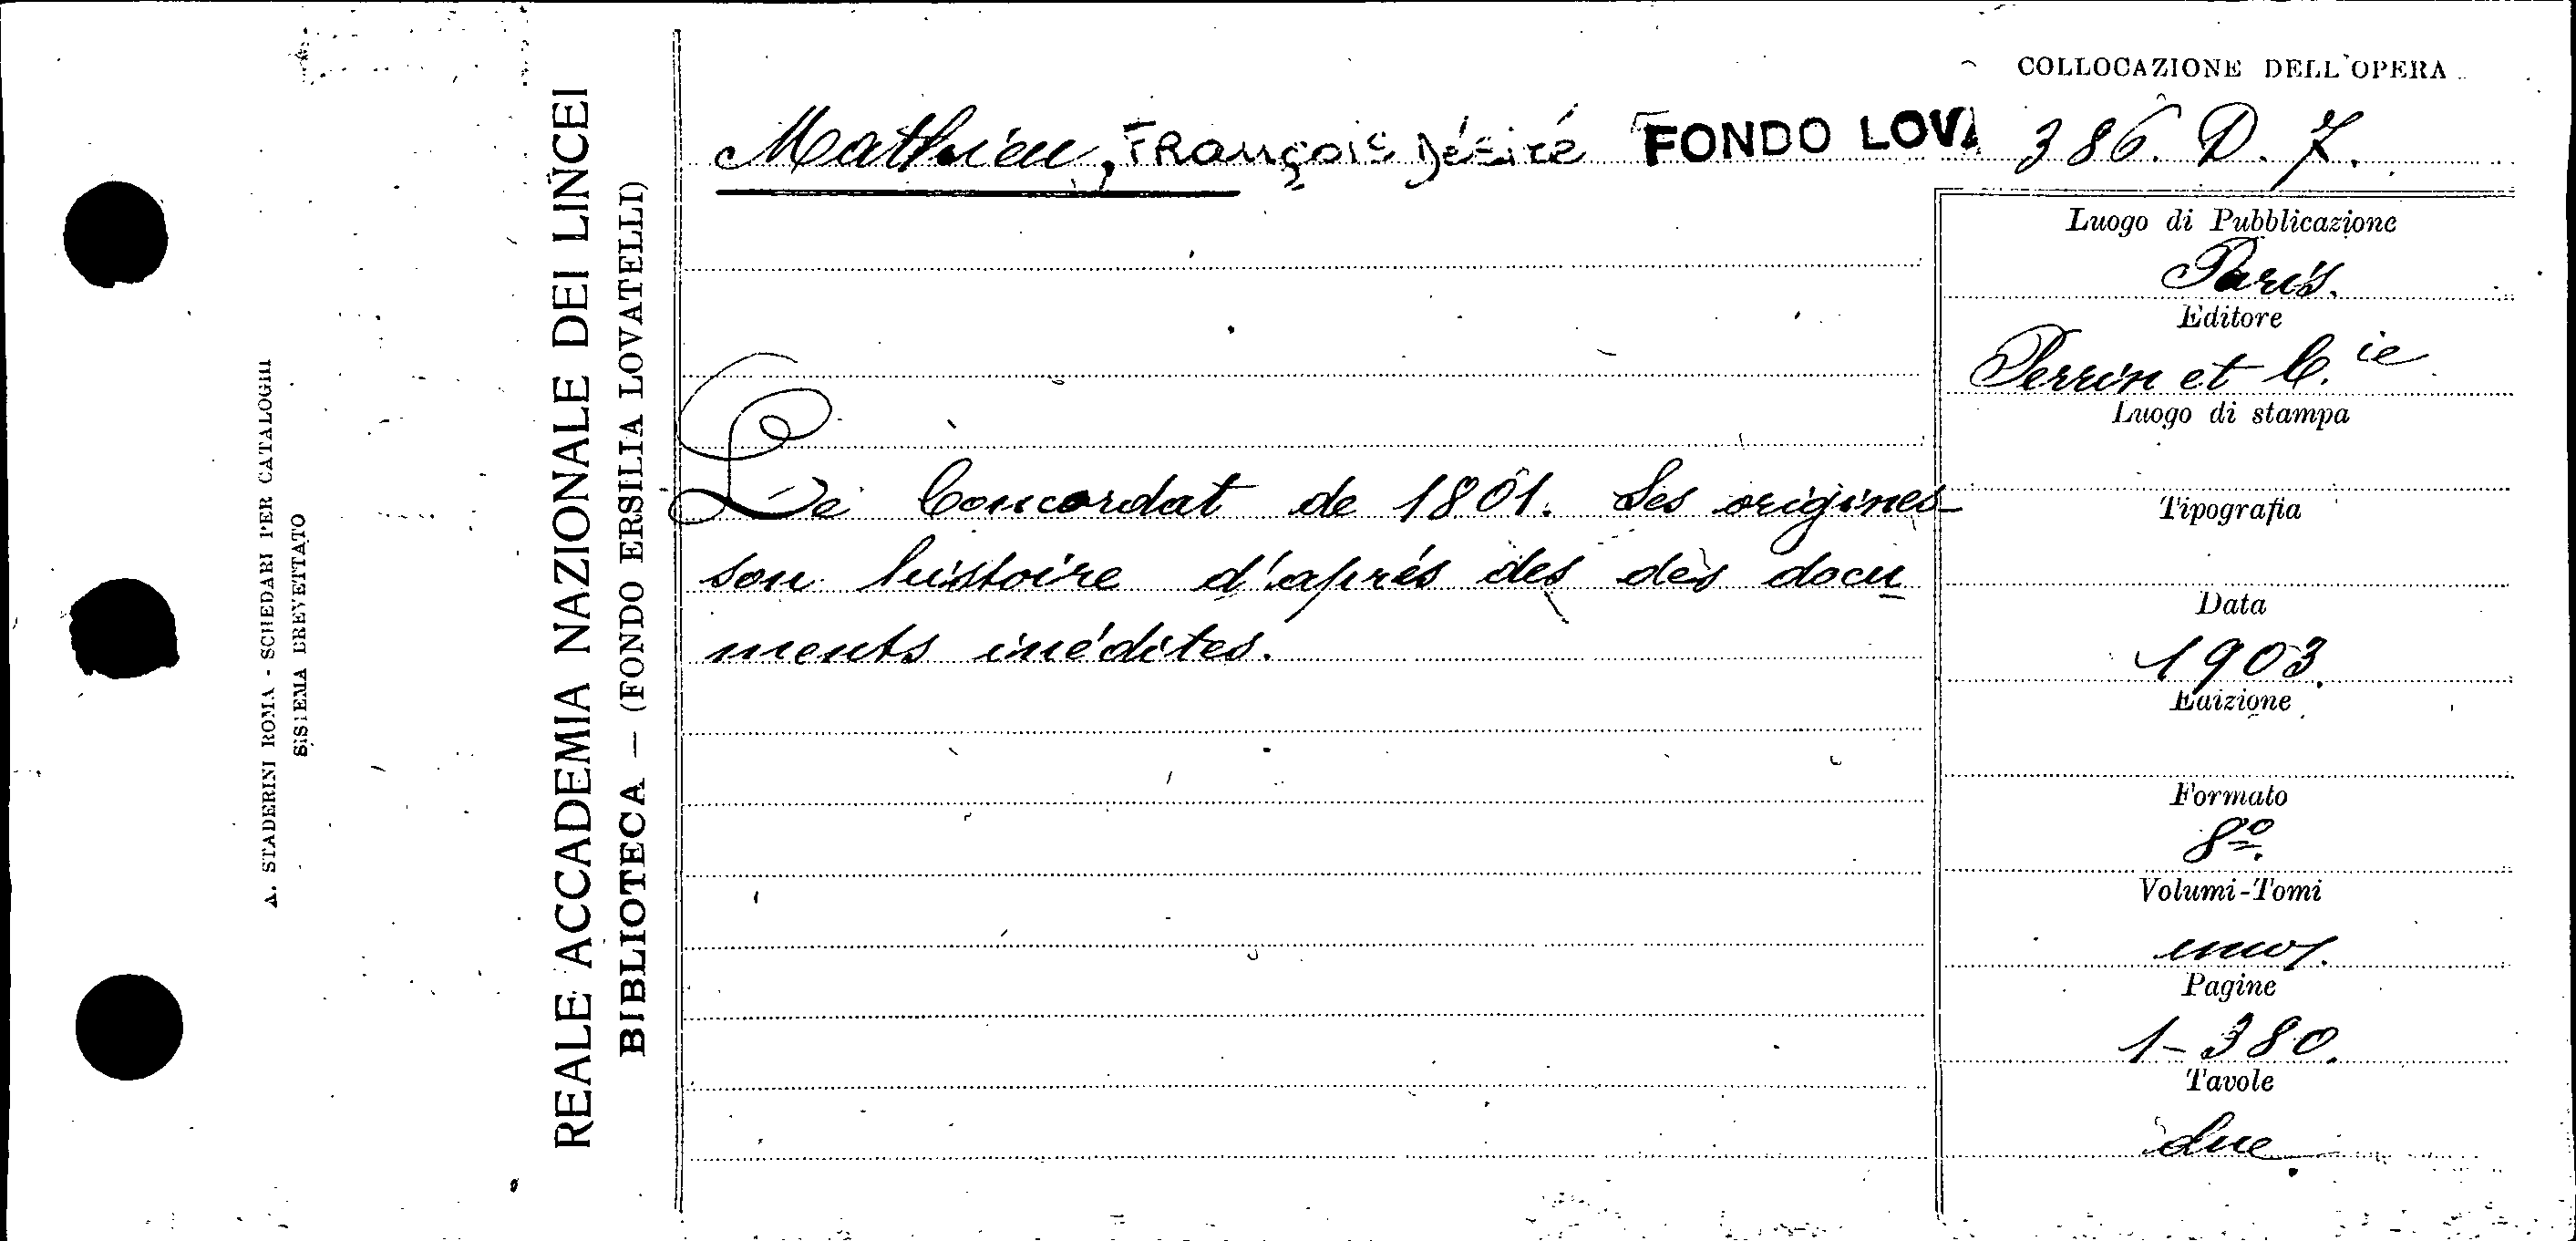 A. STADERINI ROMA - SCHEDARI PER CATALOGHI
SISTEMA BREVETTATO
REALE ACCADEMIA NAZIONALE DEI LINCEI
BIBLIOTECA — (FONDO ERSILIA LOVATELLI)
COLLOCAZIONE DELL'OPERA
Mathieu, François Désiré FONDO LOVA 386. D. 7.
Le Concordat de 1801. Ses origines
son histoire d'aprés des des docu
ments inédites.
Luogo di Pubblicazione
Paris.
Editore
Perrin et C.ie
Luogo di stampa
Tipografia
Data
1903.
Edizione
Formato
8º.
Volumi-Tomi
uno.
Pagine
1-380.
Tavole
due.